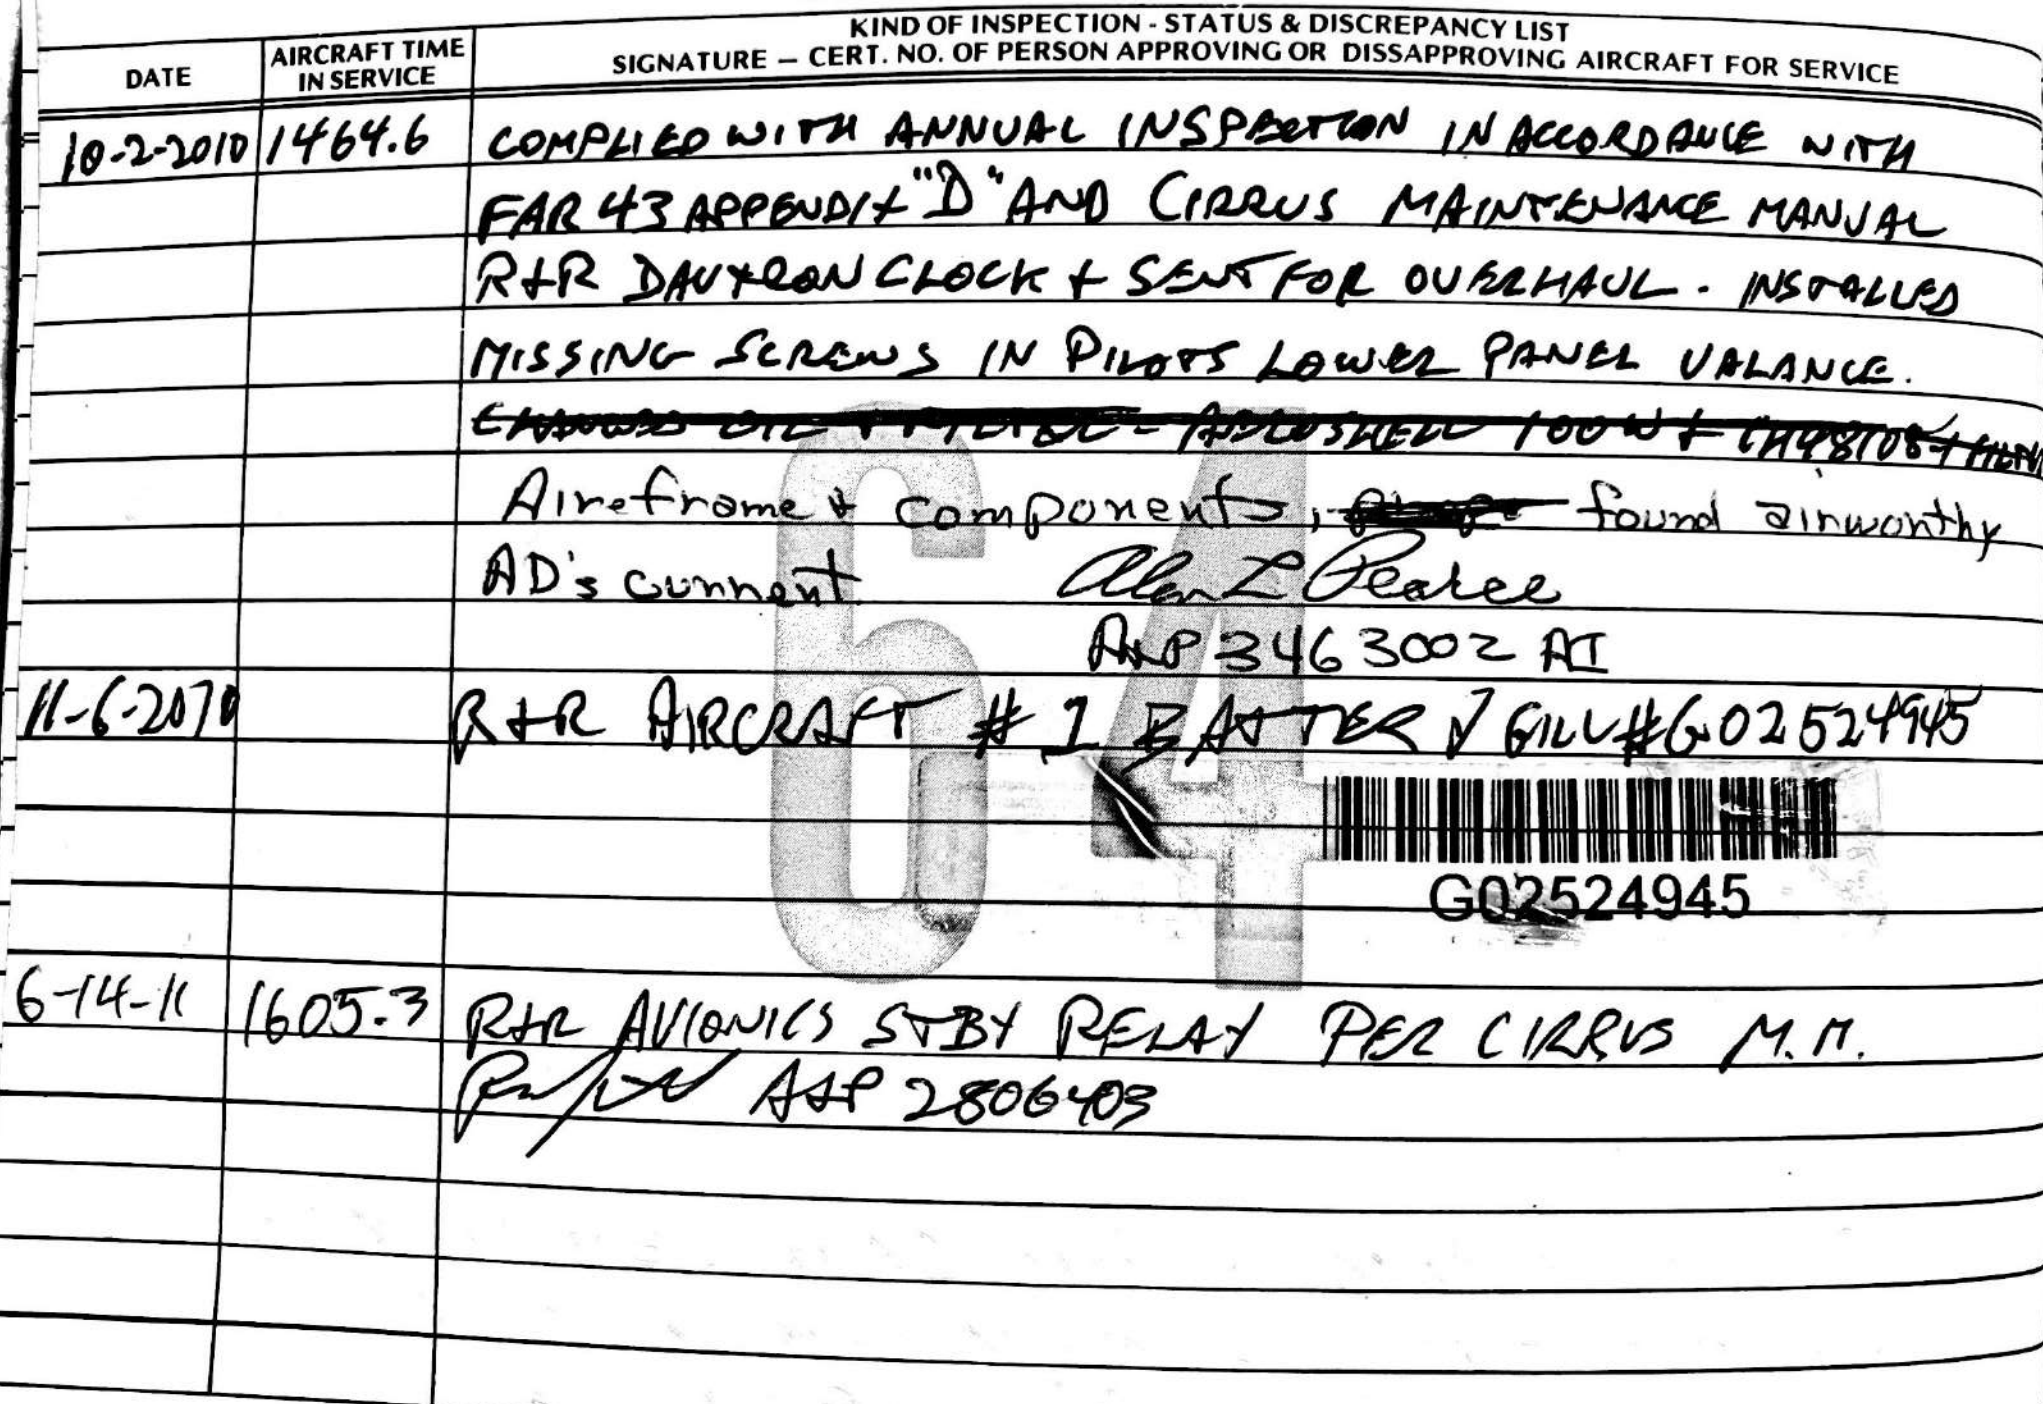 KIND OF INSPECTION - STATUS & DISCREPANCY LIST
DATE AIRCRAFT TIME IN SERVICE SIGNATURE — CERT. NO. OF PERSON APPROVING OR DISSAPPROVING AIRCRAFT FOR SERVICE
10-2-2010 1464.6 COMPLIED WITH ANNUAL INSPECTION IN ACCORDANCE WITH
FAR 43 APPENDIX "D" AND CIRRUS MAINTENANCE MANUAL
R+R DAVTRON CLOCK + SENT FOR OVERHAUL. INSTALLED
MISSING SCREWS IN PILOTS LOWER PANEL VALANCE.
AEROSHELL 100W + CH48108-1
Aireframe & components, found airworthy
AD's current Alan L Pearce
A&P 3463002 AI
64
11-6-2010 R+R AIRCRAFT #1 BATTERY GILL #G02524945
G02524945
6-14-11 1605.3 R+R AVIONICS STBY RELAY PER CIRRUS M.M.
A+P 2806403